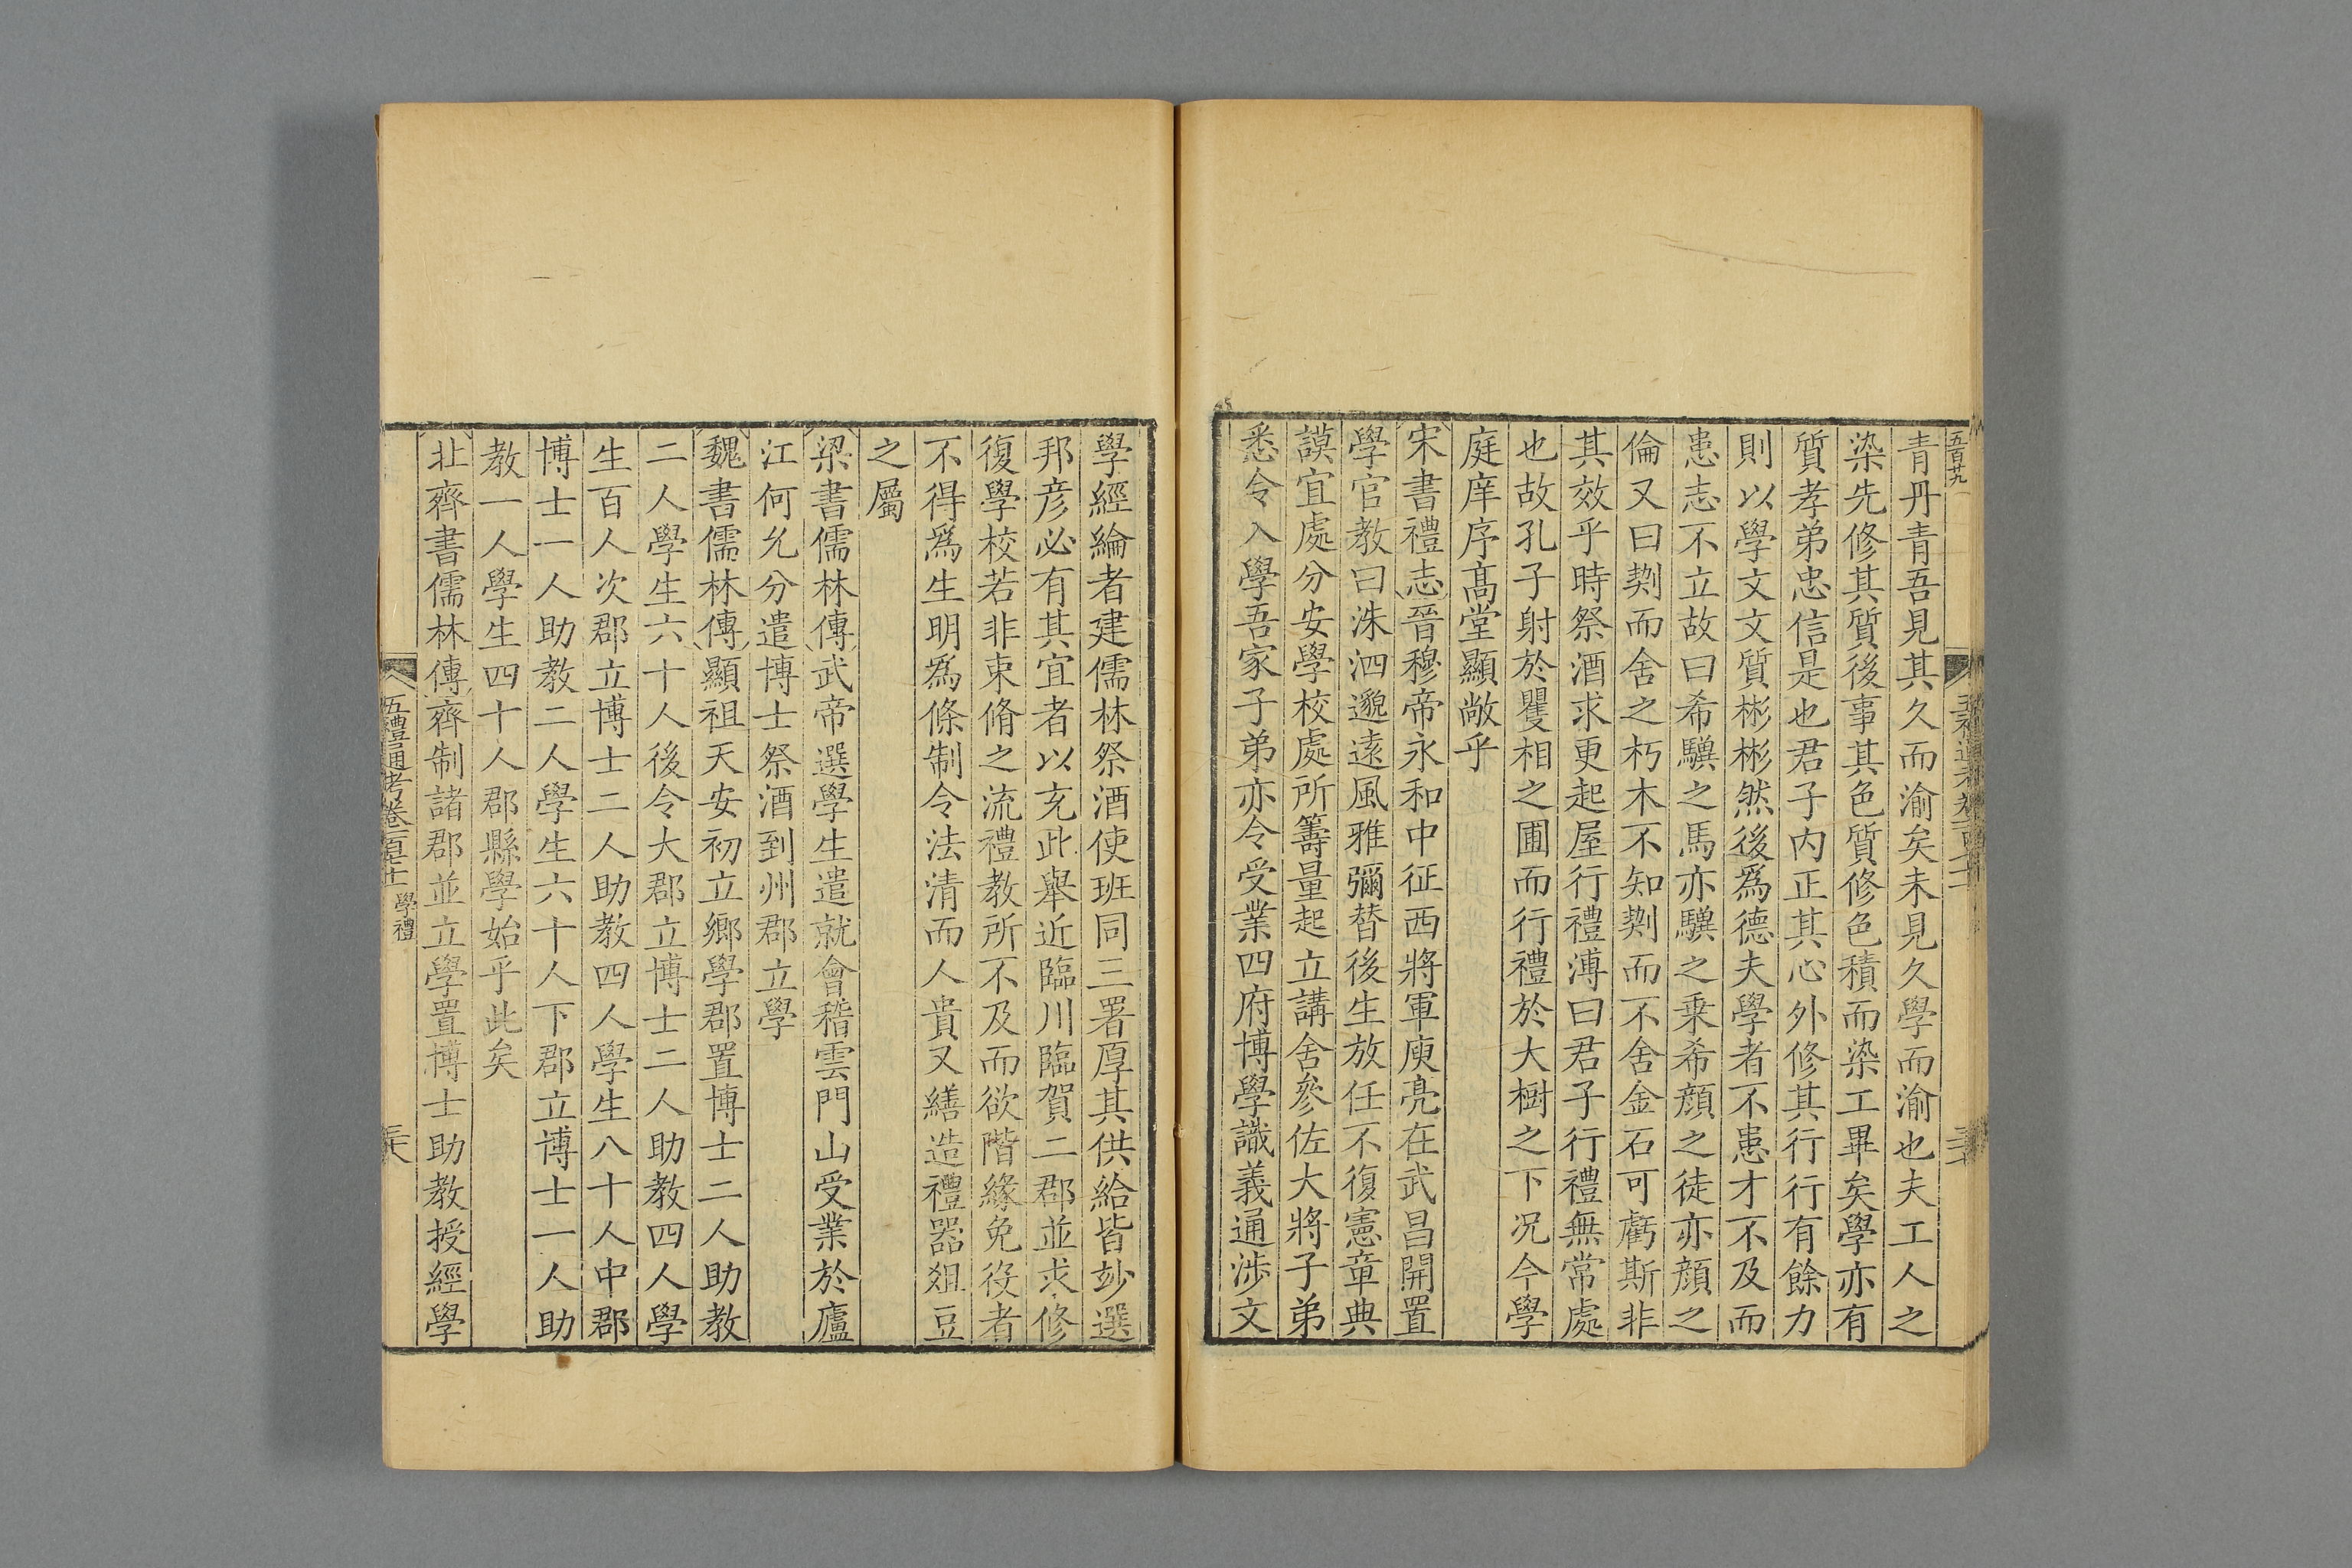 五百廿九
青丹青吾見其久而渝矣未見久學而渝也夫工人之
染先修其質後事其色質修色積而染工畢矣學亦有
質孝弟忠信是也君子内正其心外修其行行有餘力
則以學文文質彬彬然後爲德夫學者不患才不及而
患志不立故曰希驥之馬亦驥之乗希顔之徒亦顔之
倫又曰剘而舍之朽木不知剘而不舍金石可虧斯非
其效乎時祭酒求更起屋行禮溥曰君子行禮無常處
也故孔子射於矍相之圃而行禮於大樹之下况今學
庭庠序髙堂顯敞乎
宋書禮志晉穆帝永和中征西將軍庾亮在武昌開置
學官教曰洙泗邈遠風雅彌替後生放任不復憲章典
謨宜處分安學校處所籌量起立講舍參佐大將子弟
悉令入學吾家子弟亦令受業四府博學識義通涉文
學經綸者建儒林祭酒使班同三署厚其供給皆妙選
邦彦必有其宜者以充此舉近臨川臨賀二郡並求修
復學校若非束脩之流禮教所不及而欲階緣免役者
不得爲生明爲條制令法清而人貴又繕造禮器俎豆
之屬
梁書儒林傳武帝選學生遣就會稽雲門山受業於廬
江何允分遣博士祭酒到州郡立學
魏書儒林傳顯祖天安初立鄉學郡置博士二人助教
二人學生六十人後令大郡立博士二人助教四人學
生百人次郡立博士二人助教四人學生八十人中郡
博士一人助教二人學生六十人下郡立博士一人助
教一人學生四十人郡縣學始乎此矣
北齊書儒林傳齊制諸郡並立學置博士助教授經學
五禮通考卷一百七十一 學禮